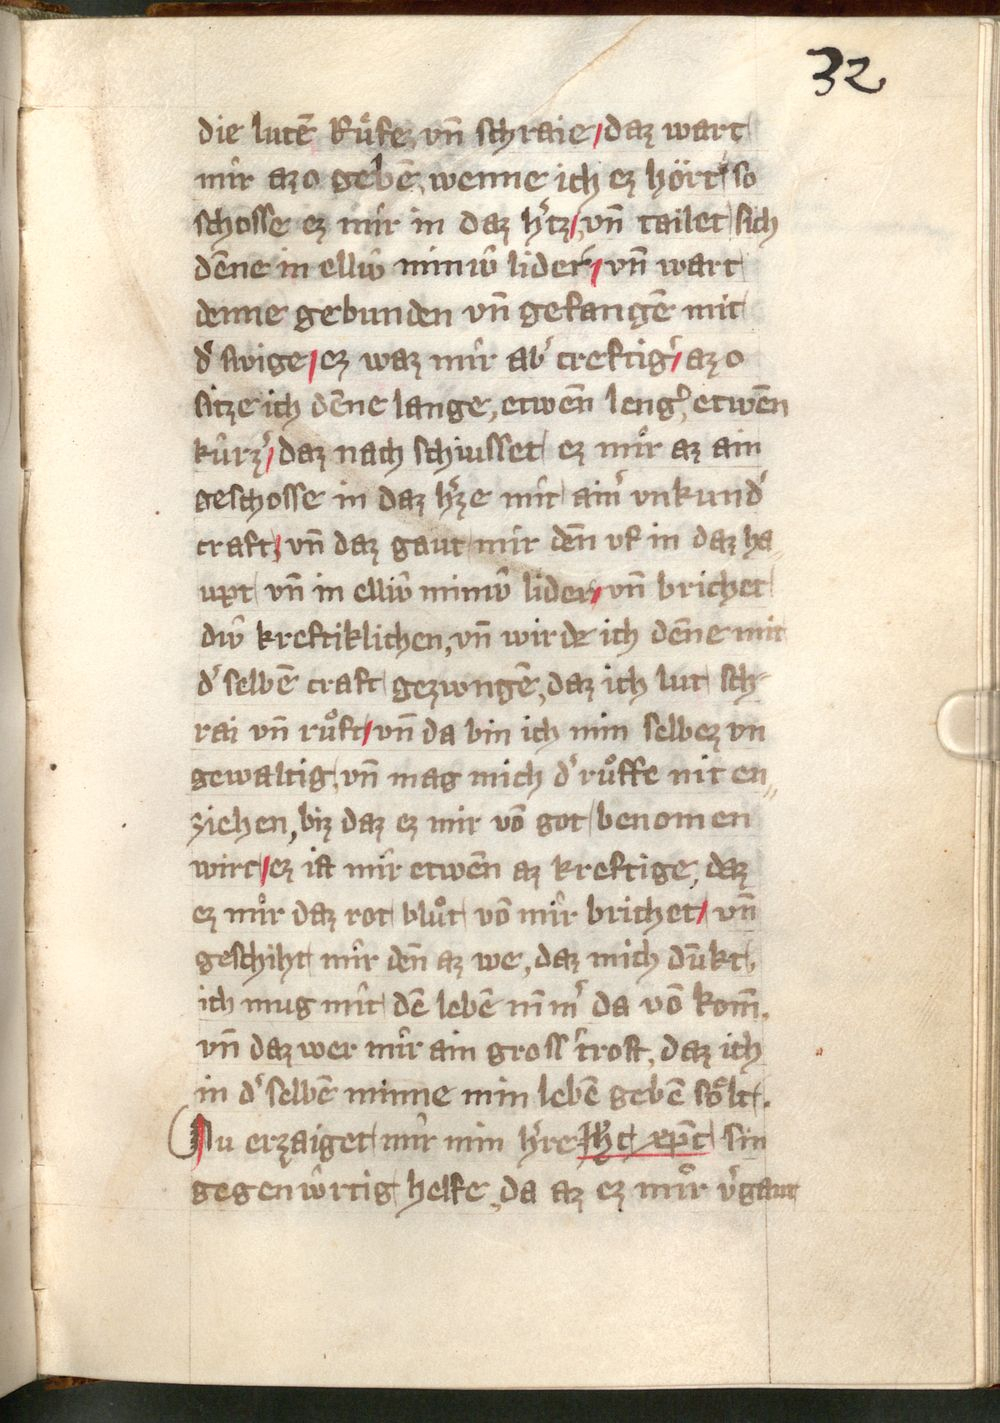 32
die lutē Růfez vn̄ schraie / daz wart
mir azo gebē, wenne ich ez hört / so
schosse ez mir in daz h᷑tz / vn̄ tailet sich
dēne in elliv̂ miniv̂ lider / vn̄ wart
denne gebunden vn̄ gefangē mit
d᷑ swige / ez waz mir ab᷑ creftig᷑ / azo
sitze ich dēne lange, etwēn leng᷑, etwēn
kûrz᷑ / daz nach schiusset ez mir az ain
geschosse in daz h᷑ze mit aim᷑ vnkund᷑
craft, vn̄ daz gaut mir dēn vf in daz ha
upt vn̄ in elliv̂ miniv̂ lider / vn̄ brichet
div̂ kreftiklichen, vn̄ wirde ich dēne mit
d᷑ selbē craft gezwngē, daz ich lut sch-
rai vn̄ růft / vn̄ da bin ich min selbez vn
gewaltig, vn̄ mag mich d᷑ růffe nit en„
ziehen, biz daz ez mir vō got benomen
wirt / ez ist mir etwēn az kreftige, daz
ez mir daz rot blůt vō mir brichet / vn̄
geschiht mir dēn az we, daz mich dūkt,
ich mug mit dē lebē nim̄᷑ da vō kom̄.
vn̄ daz wer mir ain gross trost, daz ich
in d᷑ selbē minne min lebē gebē sölt.
Nu erzaiget mir min h᷑re Jħc xp̄c sin
gegenẘrtig helfe, da az ez mir v᷑gaut